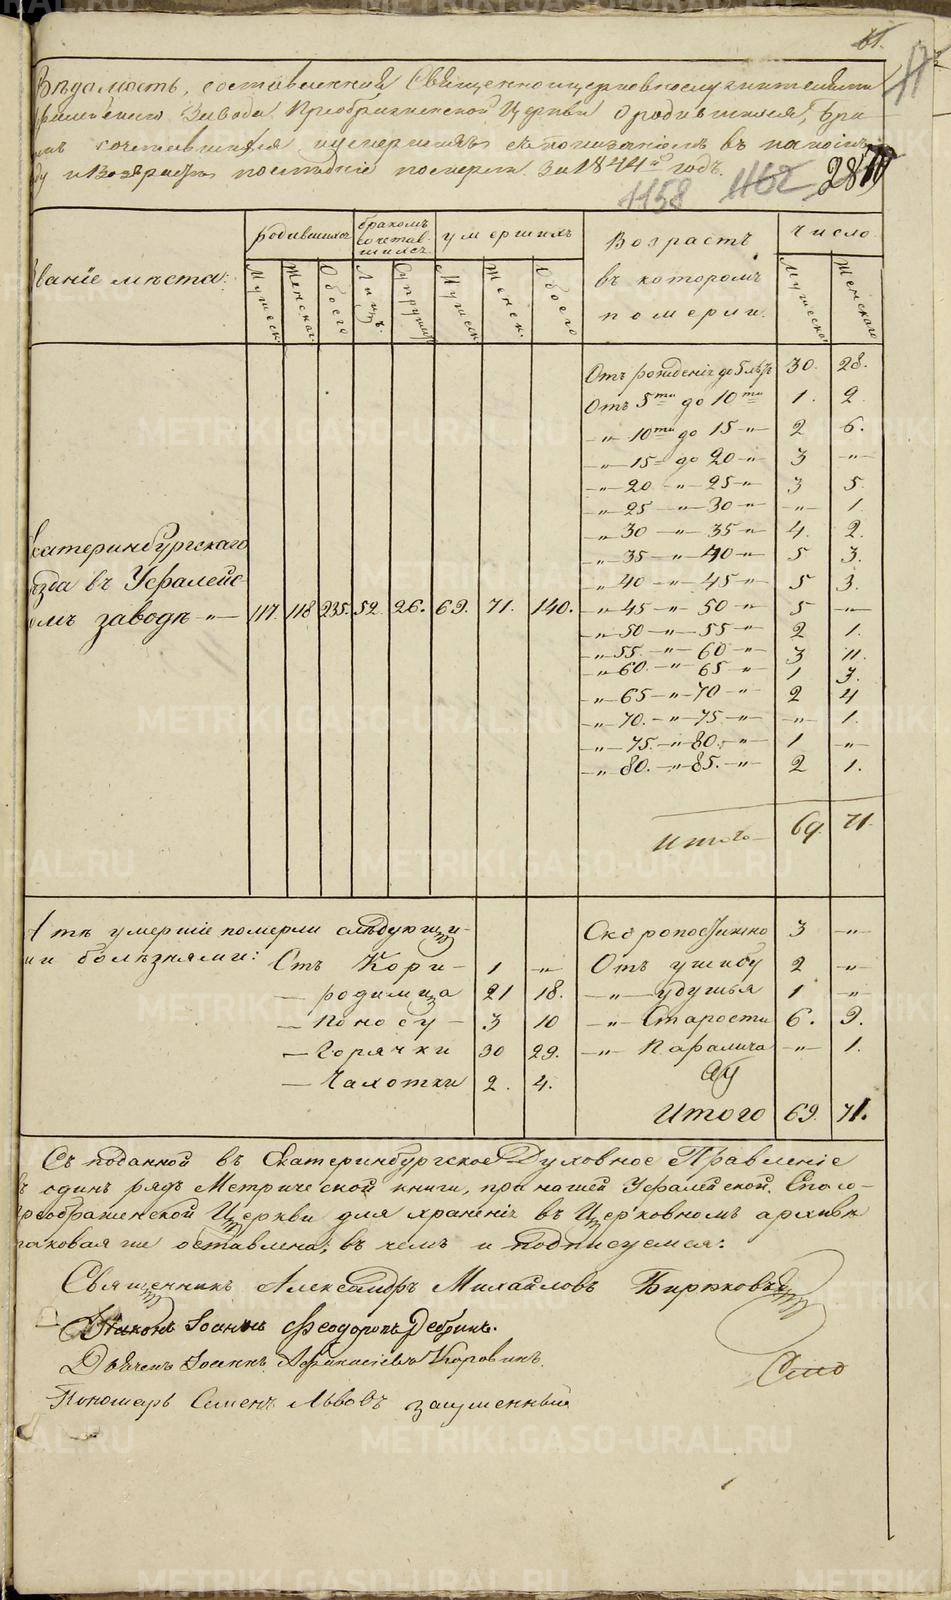 METRIKI.GASO-URAL.RU
61.
Вѣдомость, составленная Священноцерковнослужителями
Завода Преображенской Церкви о родившихся, бра
сочетавшихся и умершихъ съ показаніемъ въ какомъ
и возврастѣ послѣдніе померли За 1844й годъ.
1158 1162 28
званіе мѣста:
родившихся
бракомъ сочетав-шихся
умершихъ
Возрастъ въ которомъ померли.
Число
Мужеск. Женскаго Обоего Лицъ. Супружс. Мужеск. Женск. Обоего Мужеска Женскаго
Отъ рожденія до 5 лѣтъ 30. 28.
Отъ 5ти до 10ти 1. 2
-„- 10ти до 15 -„- 2 6.
-„- 15 - до 20 -„- 3 -„-
-„- 20 -„- 25 -„- 3 5.
-„- 25 -„- 30 -„- -„- 1.
-„- 30 -„- 35 -„- 4. 2.
-„- 35 -„- 40 -„- 5 3.
-„- 40 -„- 45 -„- 5 3.
-„- 45 -„- 50 -„- 5 -„-
-„- 50 -„- 55 -„- 2 1.
-„- 55. -„- 60 -„- 3 11.
-„- 60. -„- 65 -„- 1 3.
-„- 65 -„- 70 -„- 2 4
-„- 70. -„- 75. -„- -„- 1.
-„- 75. -„- 80. -„- 1 -„-
-„- 80. -„- 85. -„- 2 1.
Итого 69. 71.
Екатеринбургскаго
ѣзда въ Уфалейс
омъ заводѣ -„- 117. 118 235. 52. 26. 69. 71. 140.
умершіе померли слѣдующи-
ми болѣзнями: Отъ Кори - 1 -„-
- родимца 21 18.
- Поносу - 3 10
- Горячки 30 29.
- Чахотки 2. 4.
Скоропостижно 3 -„-
Отъ ушибу 2 -„-
-„- удушья 1 -„-
-„- Старости 6. 9.
-„- Паралича -„- 1.
Итого 69. 71.
Съ поданной въ Екатеринбургское Духовное Правленіе
одинъ рядъ Метрической книги, при нашей Уфалейской, Спасо-
Преображенской Церкви для храненія въ Церковномъ архивѣ
таковая же оставлена; въ чемъ и подписуемся:
Священникъ Александръ Михайловъ Бирюковъ
Діаконъ Іоаннъ Феодоровъ Дебринъ.
Дьячекъ Іоаннъ Афанасіевъ Коровинъ.
Пономарь Семенъ Львовъ